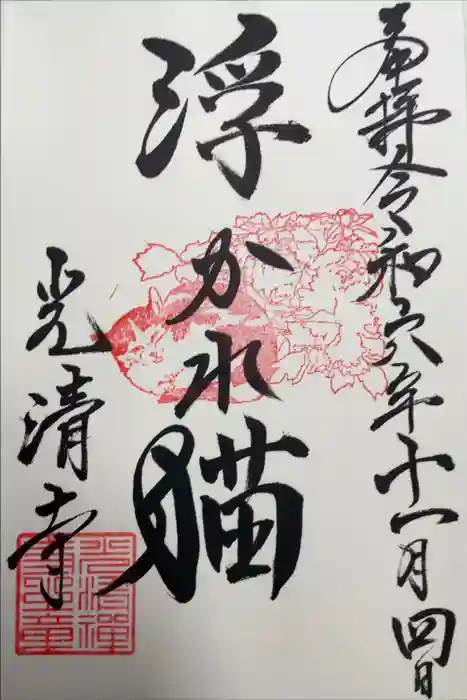 奉拝令和六年十一月四日
浮かれ猫
光清寺